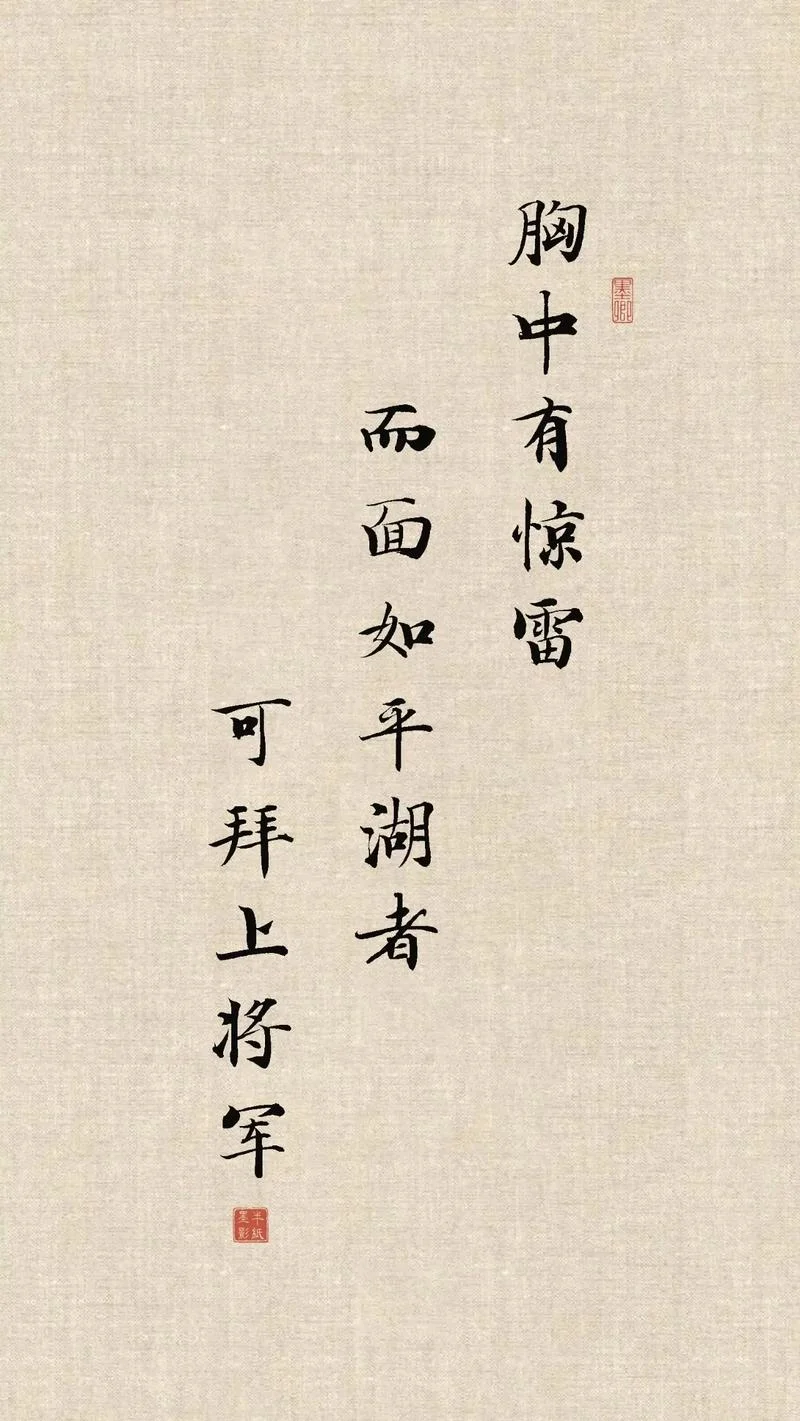 胸中有惊雷
墨卿
而面如平湖者
可拜上将军
半纸
墨影